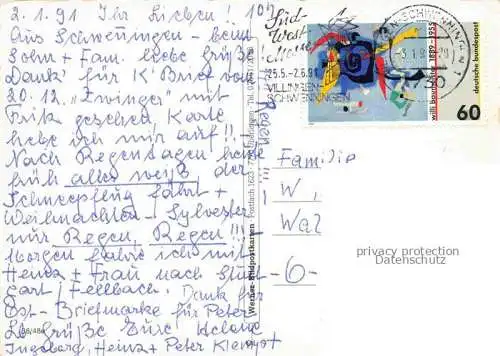 2.1.91 Ihr Lieben! 10h
Aus Schwenningen - beim
Sohn + Fam. liebe Grüße
Dank für K'Brief vom
20.12. "Zwinger" mit
gesehen Karte
hebe ich mir auf!!
Nach Regentagen heute
früh alles weiß, der
Schneepflug fährt +
Weihnachten - Sylvester
nur Regen, Regen!!!
Morgen fahre ich mit
Heinz + Frau nach Stutt-
gart / Fellbach. Dank für
Ost-Briefmarke für Peter
Grüße Eure Helene
Ingeborg, Heinz + Peter
Regen!!!
Werner-Bildpostkarten
Postfach 1623
Süd-
West-
messe
25.5.-2.6.91
VILLINGEN-
SCHWENNINGEN
SCHWENNINGEN
willi baumeister 1889-1955
deutsche bundespost
60
Familie
W,
Wal
-6-
privacy protection
Datenschutz